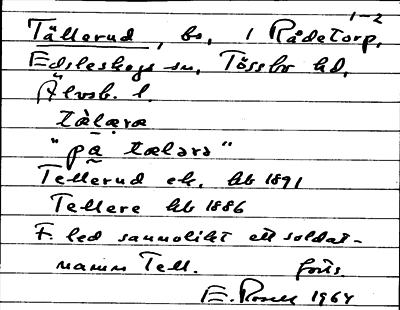 1-2
Tällerud, bs, i Rådetorp,
Edsleskogs sn, Tössbo hd,
Älvsb. l.
tælæra
"på tælərə"
Tellerud ek. kb 1891
Tellere kb 1886
F. led sannolikt ett soldat-
namn Tell. forts
E. 1964